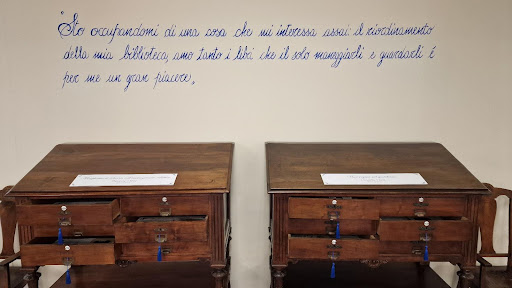 "Sto occupandomi di una cosa che mi interessa assai: il riordinamento
della mia biblioteca, amo tanto i libi che il solo maneggiarli e guardarli è
per me un gran piacere„